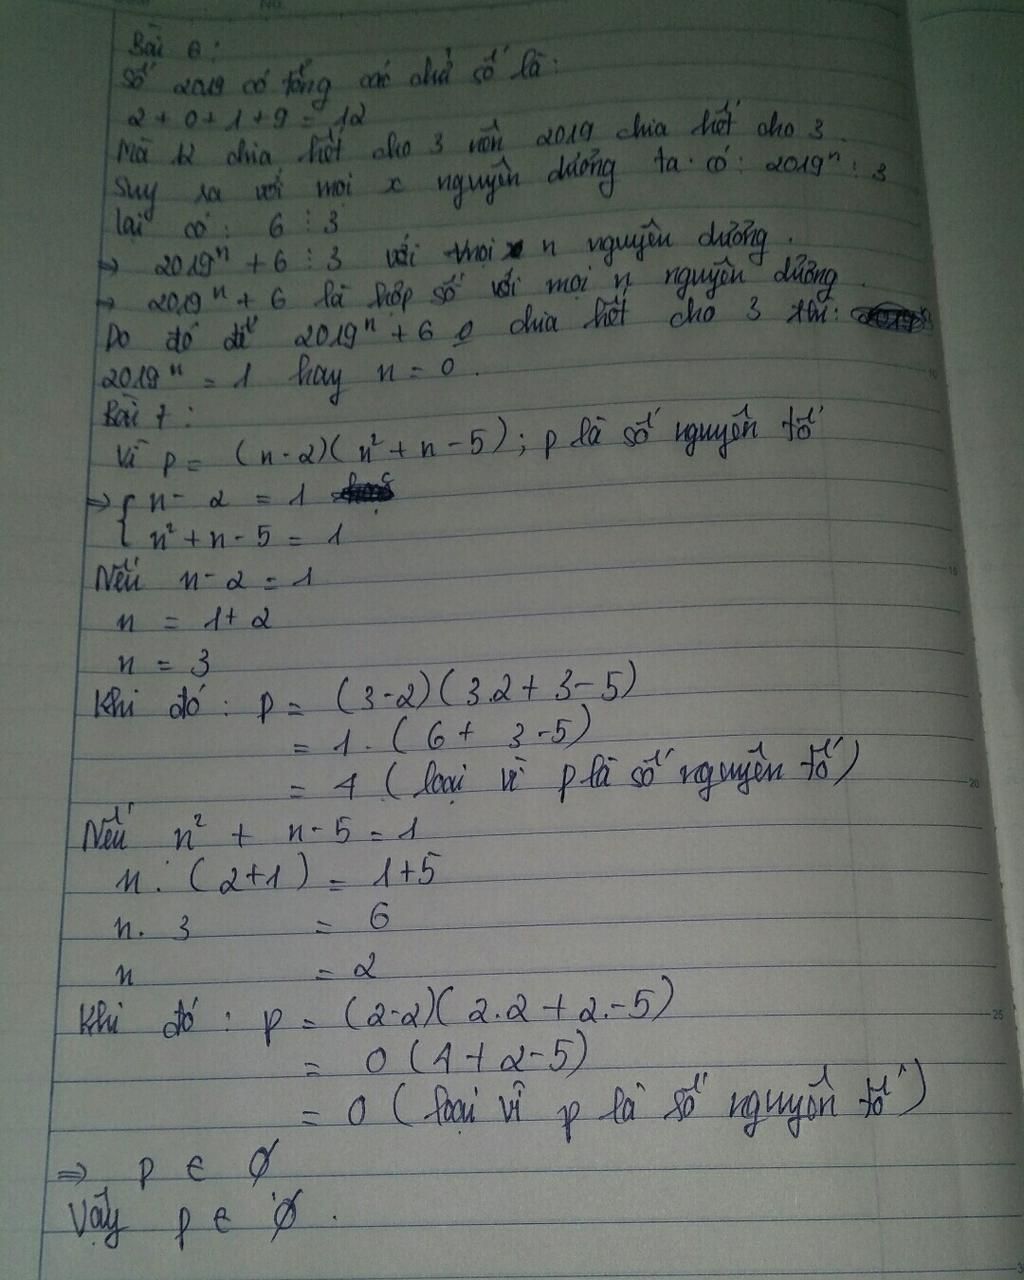 Bài 6:
Số 2019 có tổng các chữ số là:
2 + 0 + 1 + 9 = 12
Mà 12 chia hết cho 3 nên 2019 chia hết cho 3.
Suy ra với mọi x nguyên dương ta có: 2019ⁿ ⋮ 3
lại có: 6 ⋮ 3
→ 2019ⁿ + 6 ⋮ 3 với mọi n nguyên dương.
→ 2019ⁿ + 6 là hợp số với mọi n nguyên dương.
Do đó để 2019ⁿ + 6 0 chia hết cho 3 thì:
2019ⁿ = 1 hay n = 0.
Bài 7:
Vì p = (n-2)(n² + n - 5); p là số nguyên tố
=> { n - 2 = 1
{ n² + n - 5 = 1
Nếu n - 2 = 1
n = 1 + 2
n = 3
Khi đó: p = (3-2)(3.2 + 3 - 5)
= 1. (6 + 3 - 5)
= 4 (loại vì p là số nguyên tố)
Nếu n² + n - 5 = 1
n. (2+1) = 1+5
n. 3 = 6
n = 2
Khi đó: p = (2-2)(2.2 + 2.-5)
= 0 (4 + 2 - 5)
= 0 (loại vì p là số nguyên tố)
=> p ∈ ∅
Vậy p ∈ ∅.